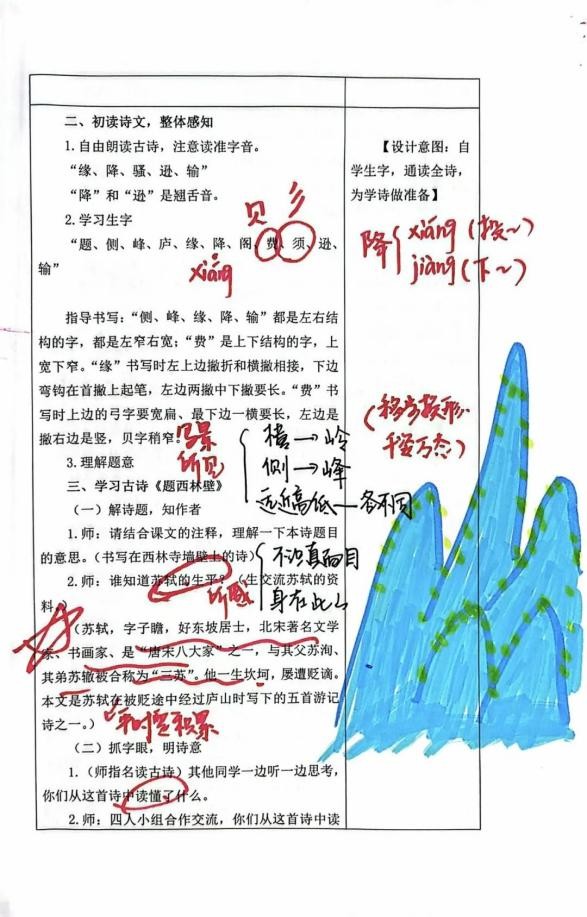 二、初读诗文，整体感知
1.自由朗读古诗，注意读准字音。
“缘、降、骚、逊、输”
“降”和“逊”是翘舌音。
2.学习生字
贝 彡
“题、侧、峰、庐、缘、降、阁、费、须、逊、
输”
xiáng
指导书写：“侧、峰、缘、降、输”都是左右结
构的字，都是左窄右宽；“费”是上下结构的字，上
宽下窄。“缘”书写时左上边撇折和横撇相接，下边
弯钩在首撇上起笔，左边两撇中下撇要长。“费”书
写时上边的弓字要宽扁、最下边一横要长，左边是
撇右边是竖，贝字稍窄。
写景
所见
横→岭
侧→峰
远近高低—各不同
3.理解题意
三、学习古诗《题西林壁》
（一）解诗题，知作者
1.师：请结合课文的注释，理解一下本诗题目
的意思。（书写在西林寺墙壁上的诗）
2.师：谁知道苏轼的生平？（生交流苏轼的资
料。）
所感
不识真面目
身在此山
（苏轼，字子瞻，好东坡居士，北宋著名文学
家、书画家、是“唐宋八大家”之一，与其父苏洵、
其弟苏辙被合称为“三苏”。他一生坎坷，屡遭贬谪。
本文是苏轼在被贬途中经过庐山时写下的五首游记
诗之一。）
平时要积累
（二）抓字眼，明诗意
1.（师指名读古诗）其他同学一边听一边思考，
你们从这首诗中读懂了什么。
2.师：四人小组合作交流，你们从这首诗中读
【设计意图：自
学生字，通读全诗，
为学诗做准备】
降 xiáng（投~）
jiàng（下~）
（移步换形
千姿万态）